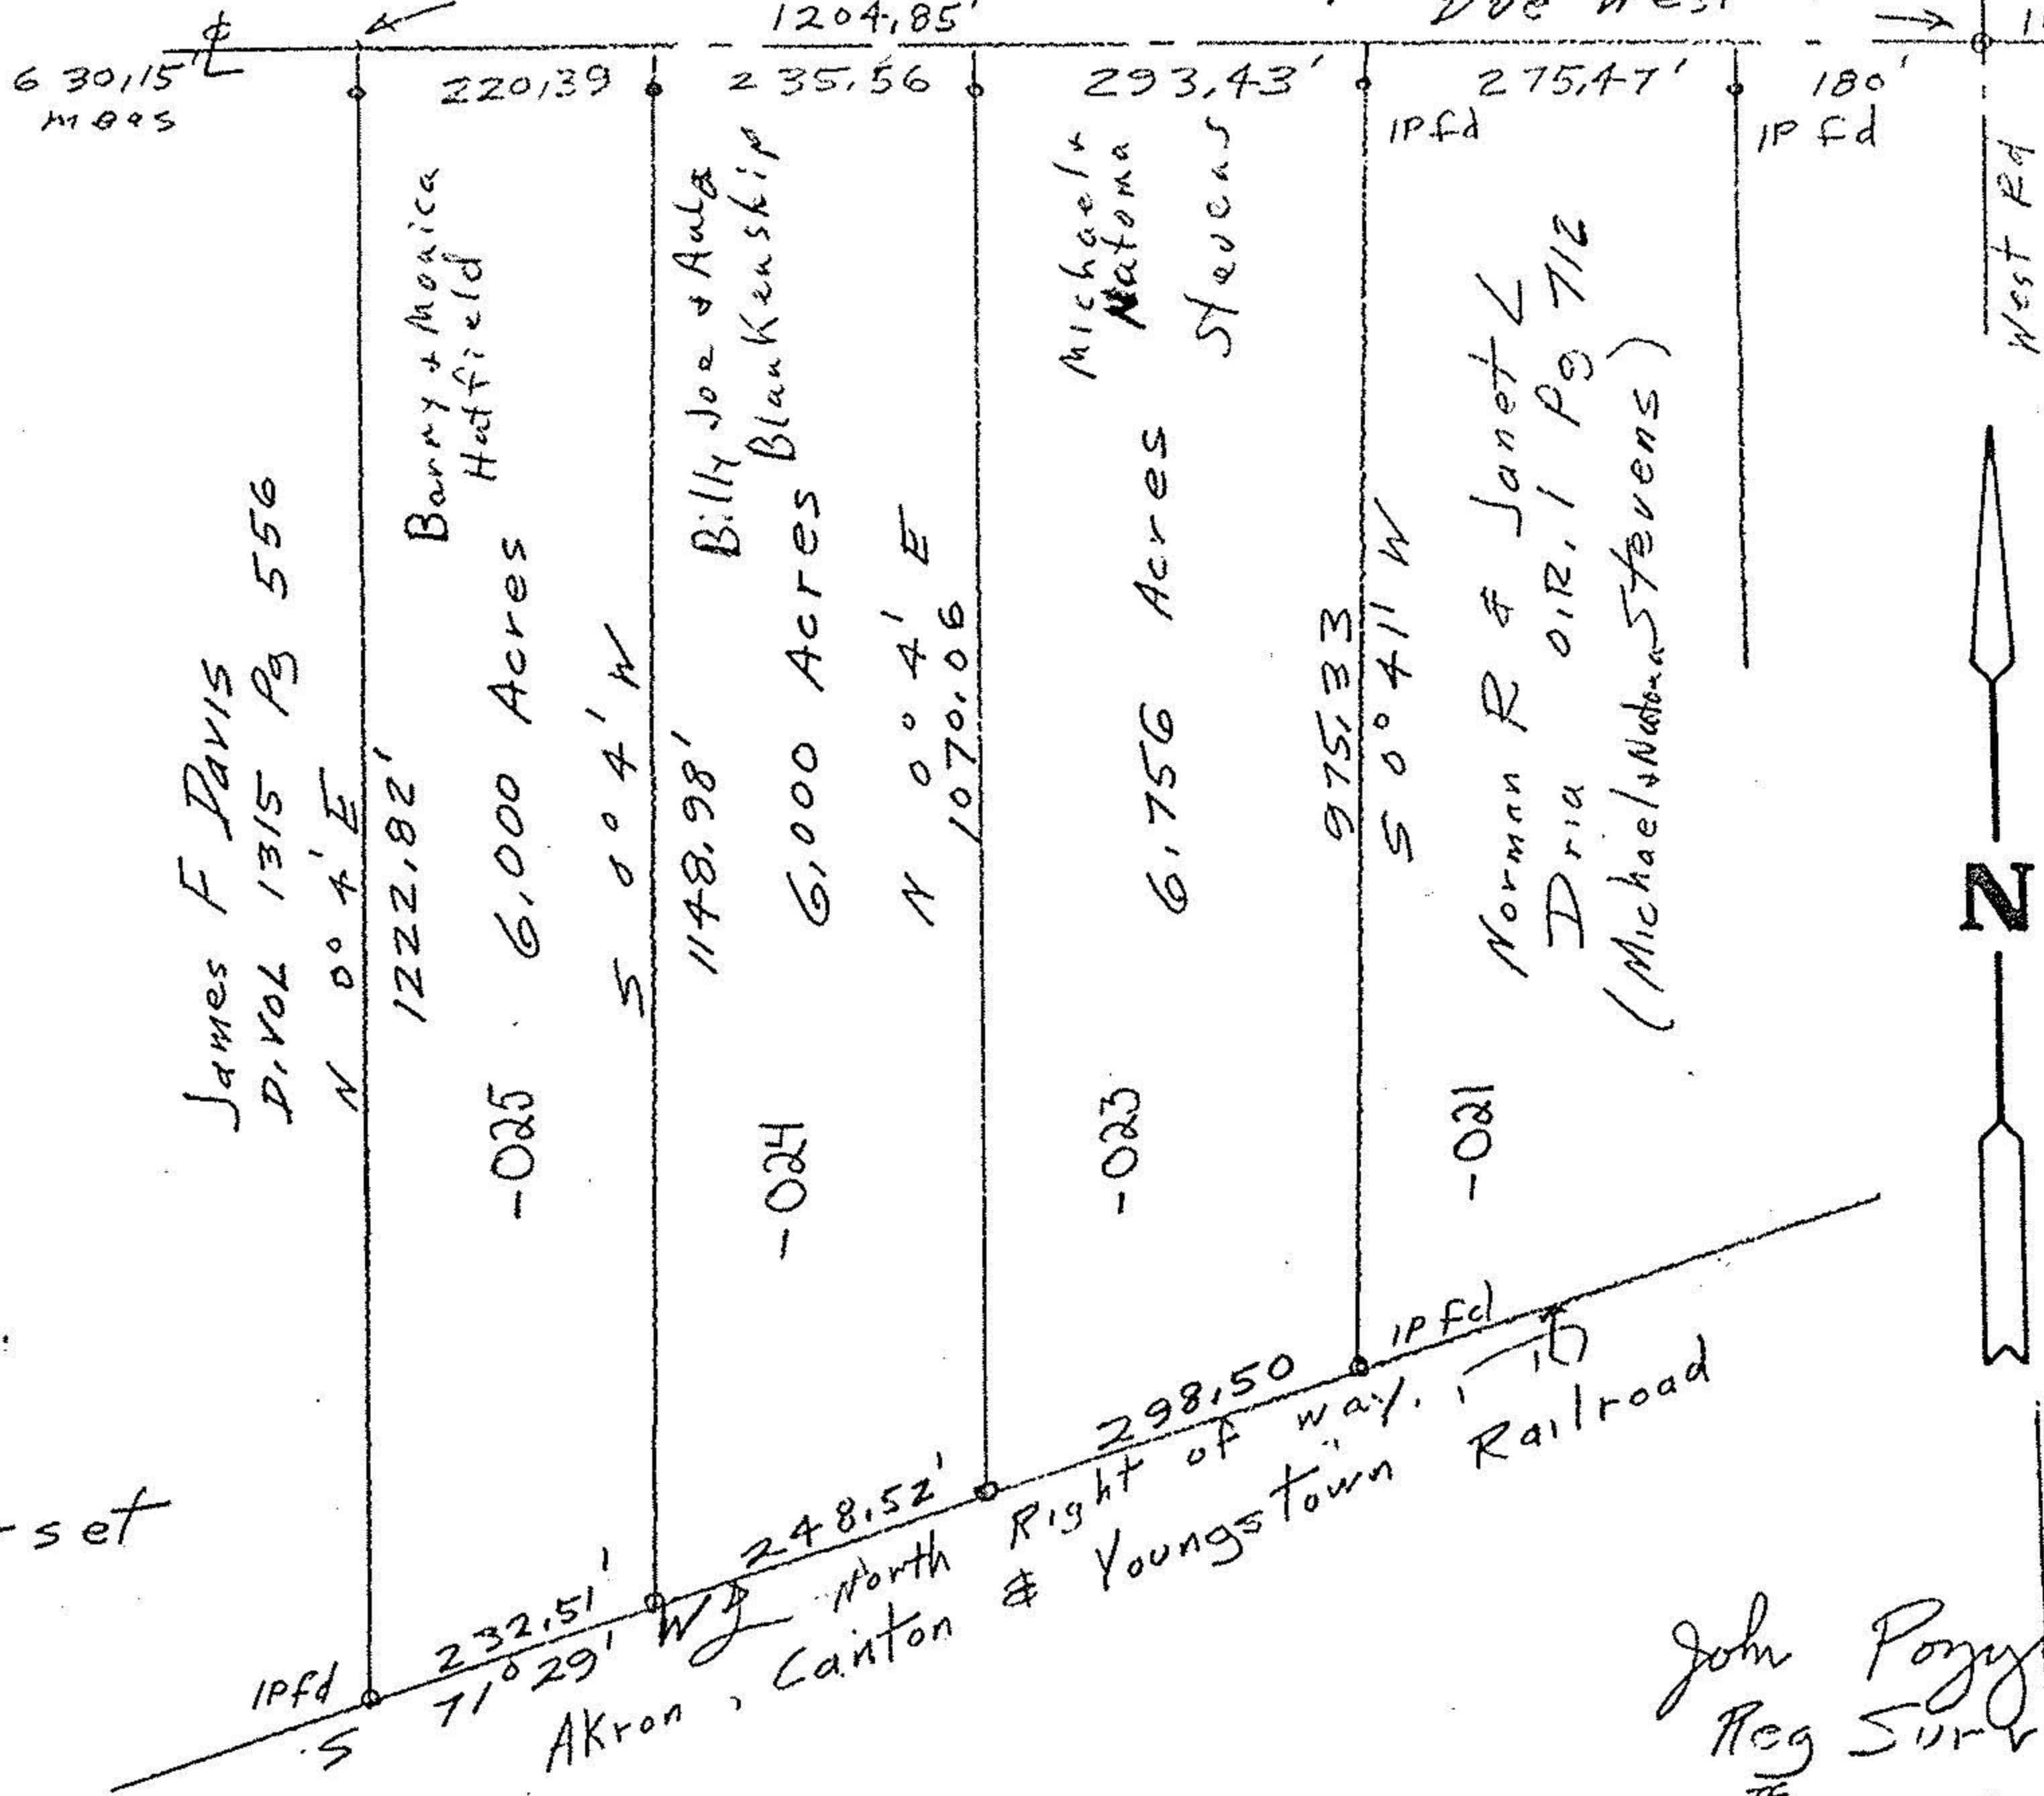 1204.85'
Due West
630.15'
meas
220.39
235.56
293.43'
275.47'
180'
IPfd
IP fd
West Rd
James F Davis
D. VOL 1315 Pg 556
N 0° 4' E
1222.82'
Barry + Monica
Hatfield
6.000 Acres
-025
S 0° 4' W
1148.98'
Billy Joe &
Blankenship
6.000 Acres
-024
N 0° 4' E
1070.06
Michael +
Natoma
Stevens
6.756 Acres
-023
975.33
S 0° 4' W
Norman R & Janet L
Dria O.R. 1 Pg 712
(Michael & Natoma Stevens)
-021
N
set
IPfd
S 71° 29' W
232.51'
248.52'
298.50
IPfd
North Right of way
Akron, Canton & Youngstown Railroad
John
Reg Surv